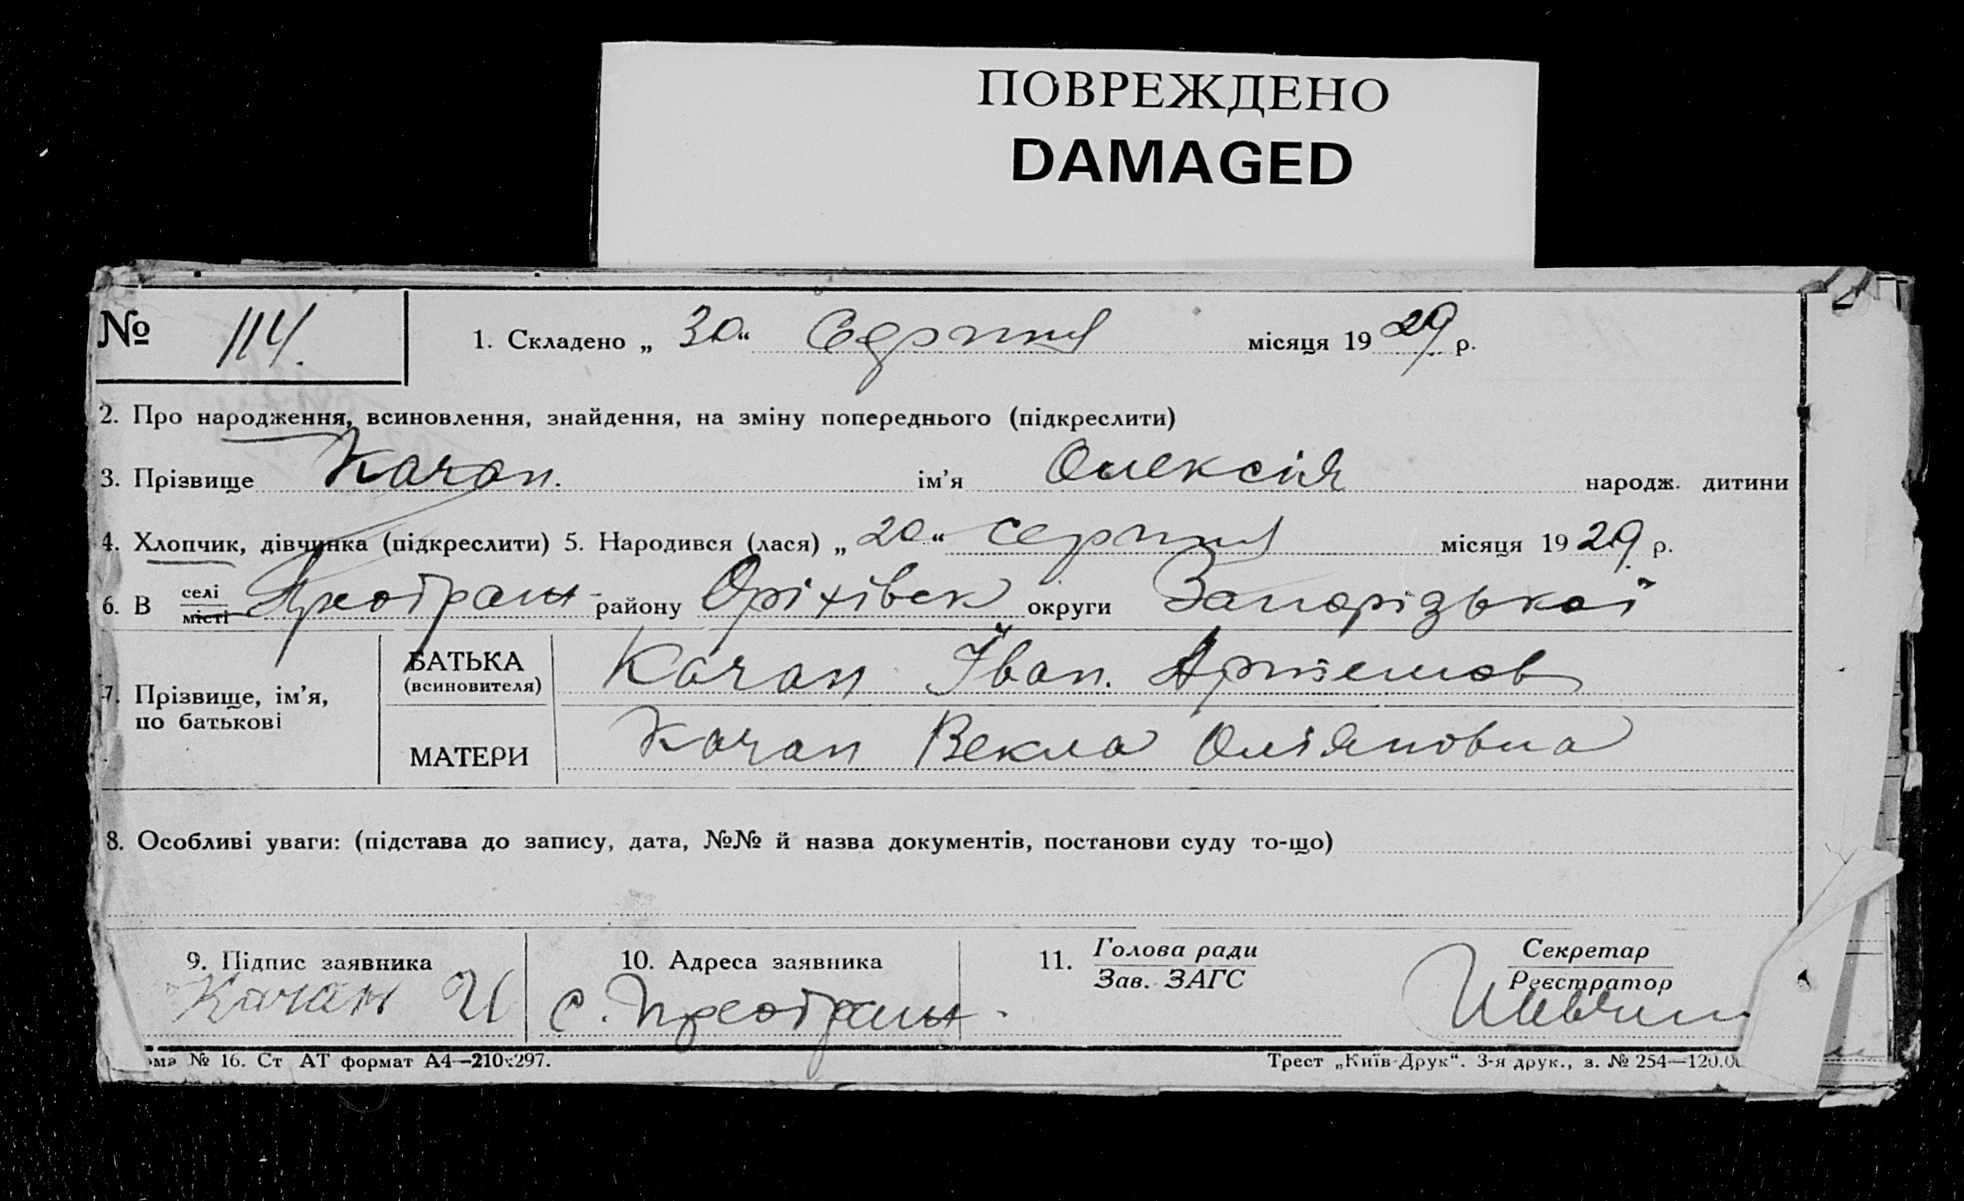 ПОВРЕЖДЕНО
DAMAGED
№ 114. 1. Складено „ 30 “ Серпня місяця 19 29 р.
2. Про народження, всиновлення, знайдення, на зміну попереднього (підкреслити)
3. Прізвище Качан. ім'я Олексія народж. дитини
4. Хлопчик, дівчинка (підкреслити) 5. Народився (лася) „ 20 “ серпня місяця 19 29 р.
6. В селі місті Преображ- району Оріхівськ округи Запорізької
7. Прізвище, ім'я, по батькові
БАТЬКА (всиновителя) Качан Іван. Артемов
МАТЕРИ Качан Векла
8. Особливі уваги: (підстава до запису, дата, №№ й назва документів, постанови суду то-що)
9. Підпис заявника 10. Адреса заявника 11. Голова ради Зав. ЗАГС Секретар Реєстратор
Качан И с. Преображ.
№ 16. Ст АТ формат А4—210х297. Трест „Київ-Друк“. 3-я друк., з. № 254—120.0